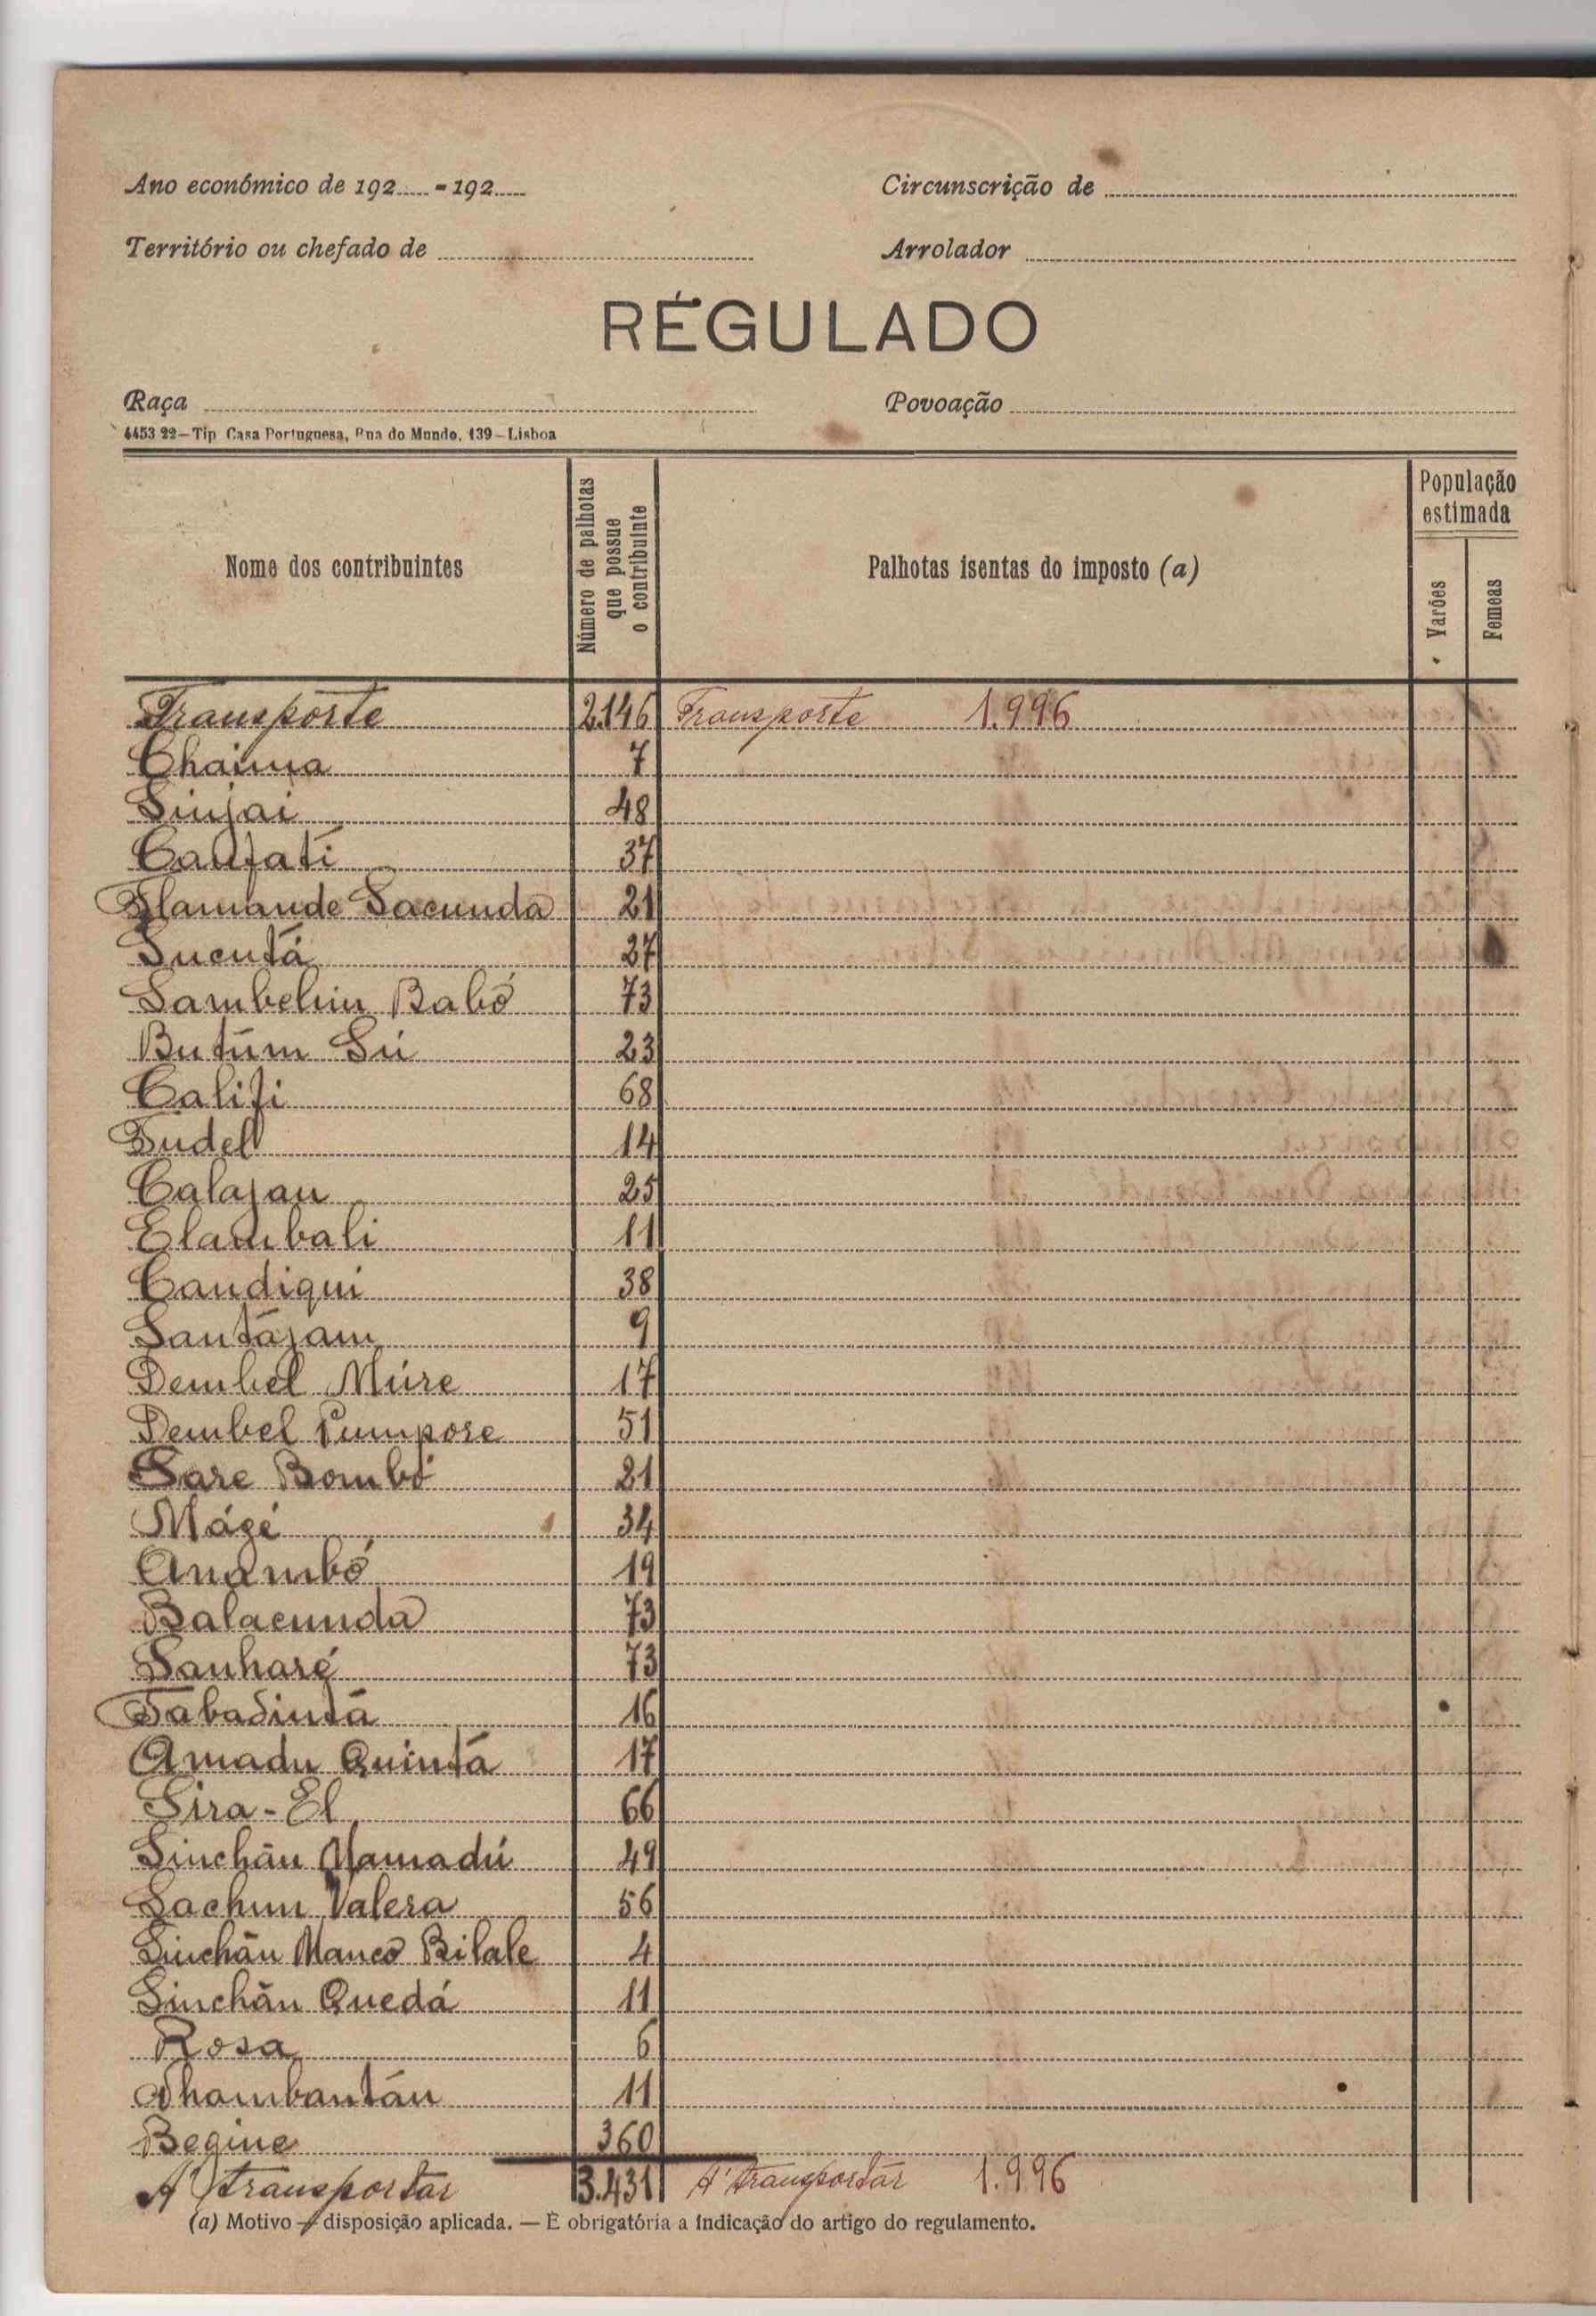 Ano económico de 192..... - 192.....
Circunscrição de
Território ou chefado de
Arrolador
RÉGULADO
Raça
Povoação
4453 22—Tip Casa Portuguesa, Rua do Mundo, 139—Lisboa
Nome dos contribuintes
Número de palhotas que possue o contribuinte
Palhotas isentas do imposto (a)
População estimada
Varões
Femeas
Transporte 2.146 Transporte 1.996
Chaima 7
Sinjai 48
Canfati 37
Flamande Sacunda 21
Sucutá 27
Sambelnin Babó 73
Butúm Sú 23
Califi 68
Tudel 14
Calajan 25
Elambali 11
Candiqui 38
Santájam 9
Dembel Múre 17
Dembel Pumpore 51
Sare Bombó 21
Mázé 34
Anambó 19
Balacunda 73
Sanharé 73
Tabadintá 16
Amadu Quintá 17
Sira-El 66
Sinchãn Mamadú 49
Sachun Valera 56
Sinchãn Manco Bilale 4
Sinchãn Quedá 11
Rosa 6
Nhambantán 11
Begine 360
A' transportar 3.431 A' transportar 1.996
(a) Motivo — disposição aplicada. — É obrigatória a indicação do artigo do regulamento.